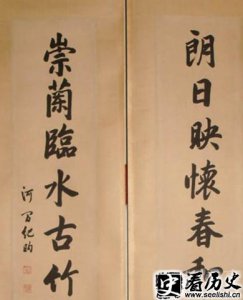 朗日映懷春和
崇蘭臨水古竹
河間紀昀
看历史
www.seelishi.cn